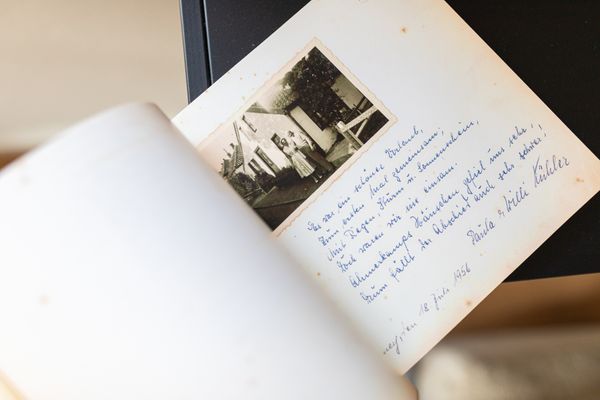 Das war ein schöner Urlaub,
Zum ersten Mal gemeinsam;
Mit Regen, Sturm u. Sonnenschein,
Doch waren wir nie einsam.
Häuschen gefiel uns sehr,
Drum fällt der Abschied auch sehr schwer!
Paula u. Willi
18. Juli 1956